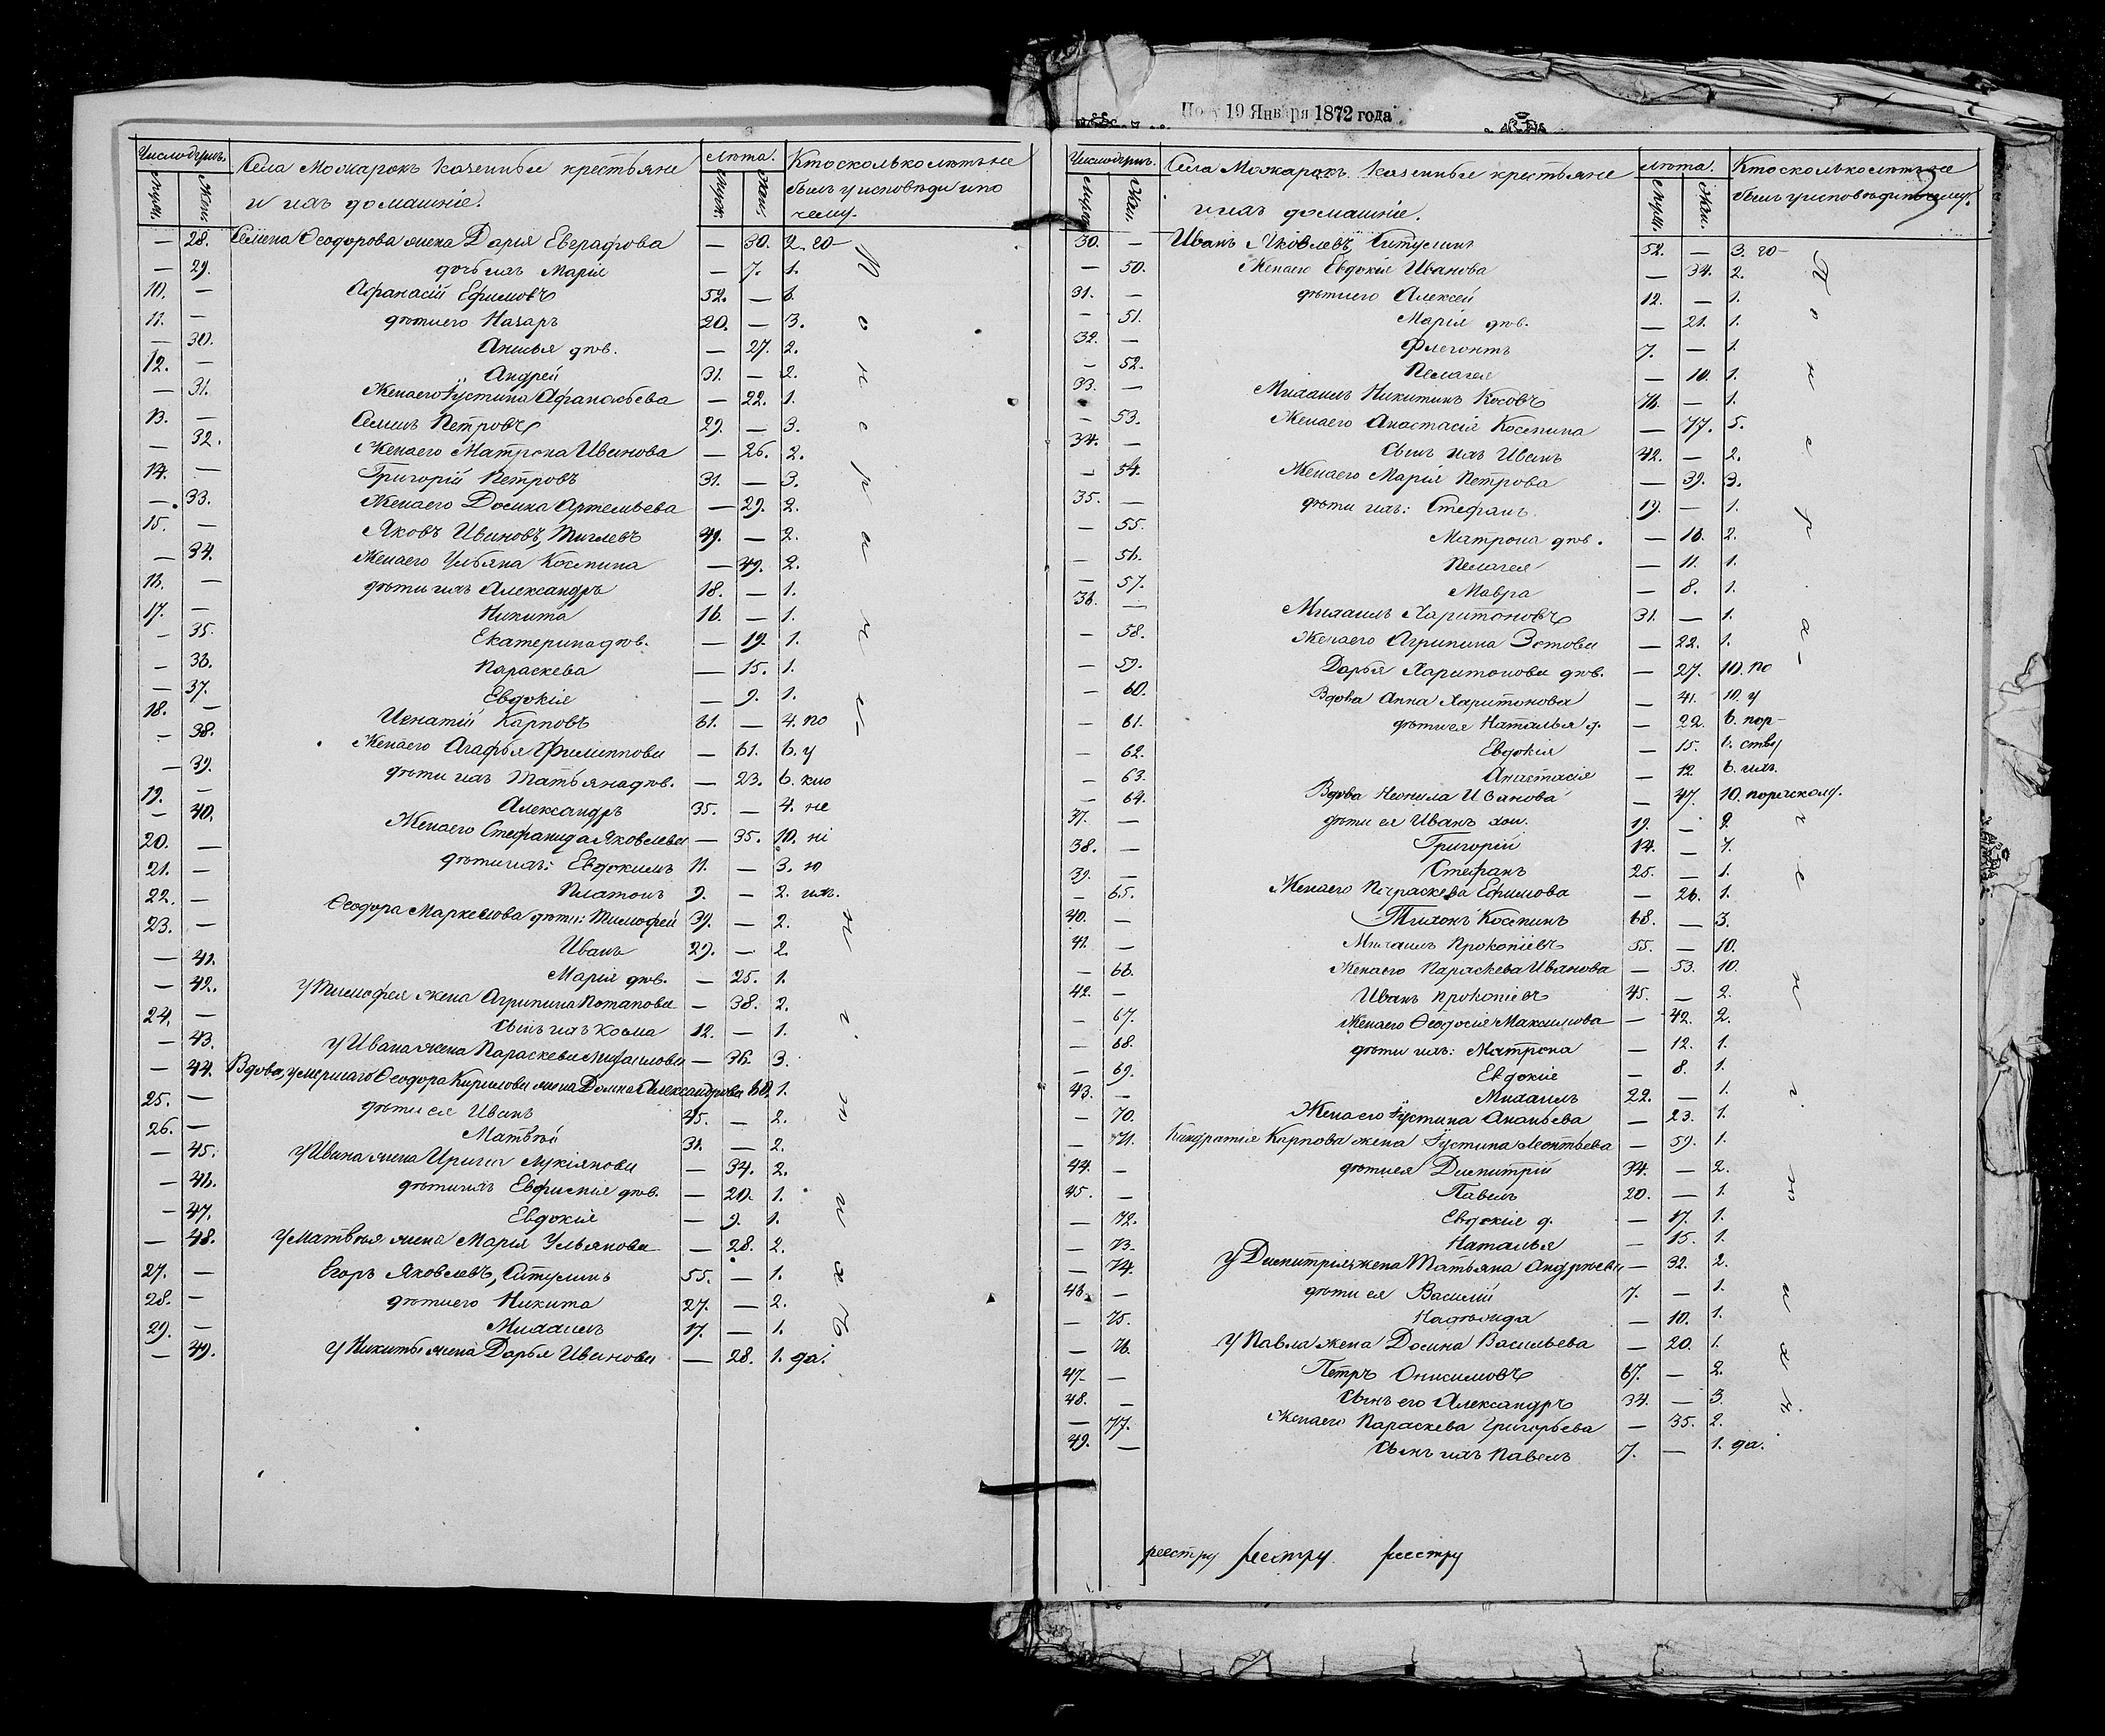 Число душъ.
Муж.
Жен.
Села Можарокъ казенные крестьяне
и ихъ домашніе.
лѣта.
Муж.
Жен.
Кто сколько лѣтъ не
былъ у исповѣди и по
чему.
— 28. Семена Ѳеодорова жена Дарія Евграфова — 30. 2. го-
— 29. дочь ихъ Марія — 7. 1.
10. — Афанасій Ефимовъ 52. — 6.
11. — дѣти его Назаръ 20. — 3.
— 30. Анисья дѣв. — 27. 2.
12. — Андрей 31. — 2.
— 31. Жена его Іустина Афанасьева — 22. 1.
13. — Семенъ Петровъ 29. — 3.
— 32. Жена его Матрона Иванова — 26. 2.
14. — Григорій Петровъ 31. — 3.
— 33. Жена его Домна Артемьева — 29. 2.
15. — Яковъ Ивановъ, 49. — 2.
— 34. Жена его Ульяна Космина — 49. 2.
16. — дѣти ихъ Александръ 18. — 1.
17. — Никита 16. — 1.
— 35. Екатерина дѣв. — 19. 1.
— 36. Параскева — 15. 1.
— 37. Евдокія — 9. 1.
18. — Игнатій Карповъ 61. — 4. по
— 38. Жена его Агафья Филиппова — 61. 6. у
— 39. дѣти ихъ Татьяна дѣв. — 23. 6. кло
19. — Александръ 35. — 4. не
— 40. Жена его Стефанида Яковлева — 35. 10. ні
20. — дѣти ихъ: Евдокимъ 11. — 3. ю
21. — Платонъ 9. — 2. ихъ.
22. — Ѳеодора Маркелова дѣти: Тимофей 39. — 2.
23. — Иванъ 29. — 2.
— 41. Марія дѣв. — 25. 1.
— 42. У Тимофея жена Агрипина Потапова — 38. 2.
24. — сынъ ихъ Козма 12. — 1.
— 43. У Ивана жена Параскева Михаилова — 36. 3.
— 44. Вдова, умершаго Ѳеодора Кирилова жена Домна Александрова 60. 1.
25. — дѣти ея Иванъ 45. — 2.
26. — Матвѣй 31. — 2.
— 45. У Ивана жена Ирина Лукіянова — 34. 2.
— 46. дѣти ихъ Евфимія дѣв. — 20. 1.
— 47. Евдокія — 9. 1.
— 48. У Матвѣя жена Марія Ульянова — 28. 2.
27. — Егоръ Яковлевъ, Ситулинъ 55. — 1.
28. — дѣти его Никита 27. — 2.
29. — Михаилъ 17. — 1.
— 49. У Никиты жена Дарья Иванова — 28. 1. да.
По 19 Января 1872 года
Число душъ.
Муж.
Жен.
Села Можарокъ казенные крестьяне
и ихъ домашніе.
лѣта.
Муж.
Жен.
Кто сколько лѣтъ не
былъ у исповѣди и почему.
30. — Иванъ Яковлевъ, Ситулинъ 52. — 3. го-
— 50. Жена его Евдокія Иванова — 34. 2.
31. — дѣти его Алексей 12. — 1.
— 51. Марія дѣв. — 21. 1.
32. — Флегонтъ 7. — 1.
— 52. Пелагея — 10. 1.
33. — Михаилъ Никитинъ Косовъ 76. — 1.
— 53. Жена его Анастасія Космина — 77. 5.
34. — Сынъ ихъ Иванъ 42. — 2.
— 54. Жена его Марія Петрова — 39. 3.
35. — дѣти ихъ: Стефанъ 19. — 1.
— 55. Матрона дѣв. — 16. 2.
— 56. Пелагея — 11. 1.
— 57. Мавра — 8. 1.
36. — Михаилъ Харитоновъ 31. — 1.
— 58. Жена его Агрипина Зотова — 22. 1.
— 59. Дарья Харитонова дѣв. — 27. 10. по
— 60. Вдова Анна Харитонова — 41. 10. у
— 61. дѣти ея Наталья д. — 22. 6. пор-
— 62. Евдокія — 15. 1. ству
— 63. Анастасія — 12 6. ихъ.
— 64. Вдова Неонила Иванова — 47. 10. по расколу.
37. — дѣти ея Иванъ хол. 19. — 2.
38. — Григорій 14. — 7.
39. — Стефанъ 25. — 1.
— 65. Жена его Параскева Ефимова — 26. 1.
40. — Тихонъ Косминъ 68. — 3.
41. — Михаилъ Прокопіевъ 55. — 10.
— 66. Жена его Параскева Иванова — 53. 10.
42. — Иванъ Прокопіевъ 45. — 2.
— 67. Жена его Ѳеодосія Максимова — 42. 2.
— 68. дѣти ихъ: Матрона — 12. 1.
— 69. Евдокія — 8. 1.
43. — Михаилъ 22. — 1.
— 70. Жена его Іустина Ананьева — 23. 1.
— 71. Кондратія Карпова жена Іустина Леонтьева — 59. 1.
44. — дѣти ея Димитрій 34. — 2.
45. — Павелъ 20. — 1.
— 72. Евдокія д. — 17. 1.
— 73. Наталья — 15. 1.
— 74. У Димитрія жена Татьяна Андреева — 32. 2.
46. — дѣти ея Василій 7. — 1.
— 75. Надежда — 10. 1.
— 76. У Павла жена Домна Васильева — 20. 1.
47. — Петръ Онисимовъ 67. — 2.
48. — Сынъ его Александръ 34. — 3.
— 77. Жена его Параскева Григорьева — 35. 2.
49. — Сынъ ихъ Павелъ 7. — 1. да.
реестру реестру. реестру